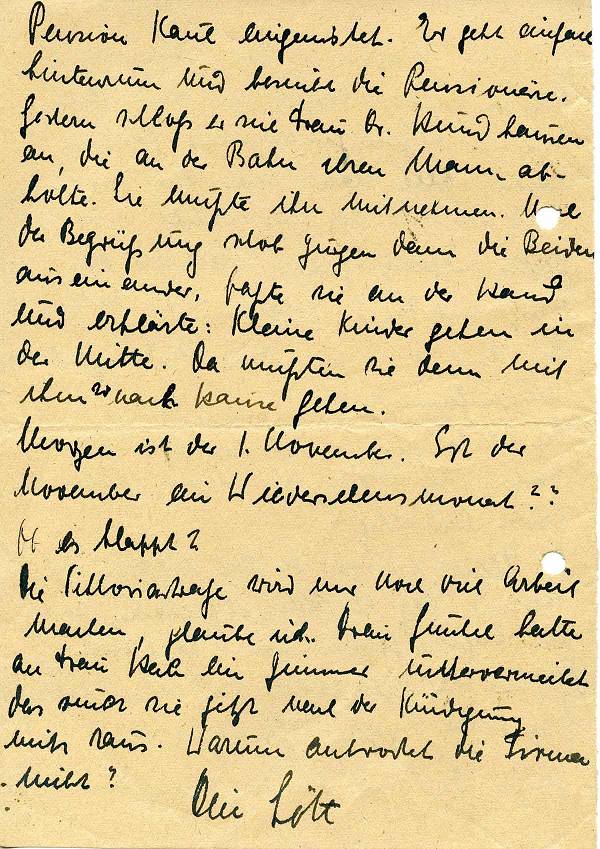 Pension Kaut eingenistet. Er geht einfach
hintenrum und besucht die Pensionäre.
Gestern schloß er sie Frau Dr. Kundhausen
an, die an der Bahn ihren Mann ab-
holte. Sie mußte ihn mitnehmen. Nach
der Begrüßung schob gingen dann die Beiden
auseinander, faßte sie an der Hand
und erklärte: Kleine Kinder gehen in
der Mitte. Da mußten sie denn mit
ihm nach Hause gehen.
Morgen ist der 1. November. Ist der
November ein Wiedersehensmonat??
Ob es klappt?
Die wird mir noch viel Arbeit
machen, glaube ich. Frau hatte
an Frau ein Zimmer untervermietet
das muß sie jetzt nach der Kündigung
mit raus. Warum antwortet die Firma
nicht?
Dein Lött